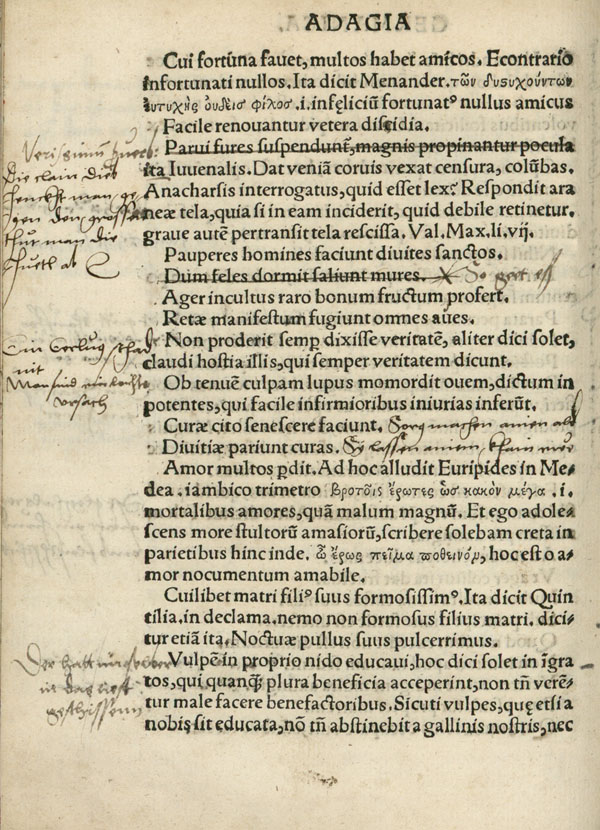 ADAGIA
Cui fortūna fauet, multos habet amicos. Econtrario
infortunati nullos. Ita dicit Menander. τῶν δυσυχούντων
ευτυχὴς ουδεισ φίλοσ .i. infęliciū fortunatꝰ nullus amicus
Facile renouantur vetera discidia.
Parui fures suspendunt, magnis propinantur pocula
ita Iuuenalis. Dat veniā coruis vexat censura, colūbas.
Die clain dieb
henckt man ge
gen den grossen
thut man die
Anacharsis interrogatus, quid esset lex? Respondit ara
neæ tela, quia si in eam inciderit, quid debile retinetur,
graue autē pertransit tela rescissa. Val. Max. li. vij.
Pauperes homines faciunt diuites sanctos.
Dum feles dormit saliunt mures. So
Ager incultus raro bonum fructum profert.
Retæ manifestum fugiunt omnes aues.
Non proderit semꝑ dixisse veritatē, aliter dici solet,
claudi hostia illis, qui semper veritatem dicunt.
Ein
nit
vrsach
Ob tenuē culpam lupus momordit ouem, dictum in
potentes, qui facile infirmioribus iniurias inferūt.
Curæ cito senescere faciunt. Sorg machen ainen alt
Diuitiæ pariunt curas. So lassen ainem khain
Amor multos ꝑdit. Ad hoc alludit Euripides in Me⸗
dea .iambico trimetro βροτοῖς ἔρωτες ὡσ κακὸν μέγα .i.
mortalibus amores, quā malum magnū. Et ego adole⸗
scens more stultorū amasiorū, scribere solebam creta in
parietibus hinc inde. ὦ ἔρως πεῖμα ποθεινόν, hoc est o a⸗
mor nocumentum amabile.
Cuilibet matri filiꝰ suus formosissimꝰ. Ita dicit Quin
tilia. in declama. nemo non formosus filius matri. dici⸗
tur etiā ita. Noctuæ pullus suus pulcerrimus.
Vulpē in proprio nido educaui, hoc dici solet in īgra
tos, qui quanꝗ̄ plura beneficia acceperint, non tn̄ verē⸗
tur male facere benefactoribus. Sicuti vulpes, quę etsi a
nobis sit educata, nō tn̄ abstinebit a gallinis nostris, nec
Der hatt
in das